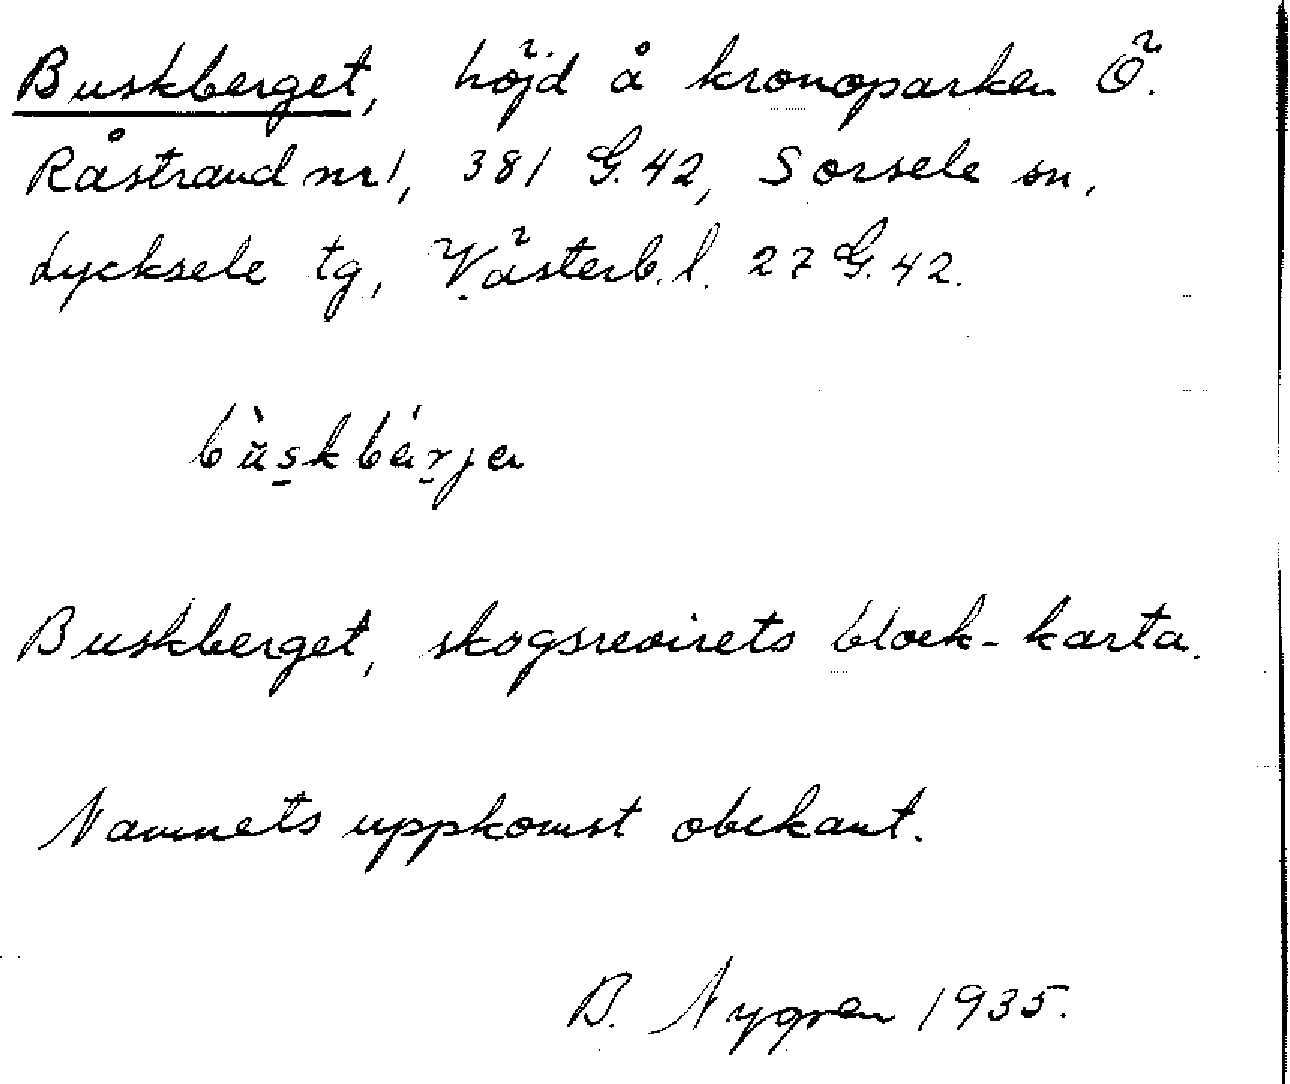 Buskberget, höjd å kronoparken Ö.
Råstrand nr 1, 381 G. 42, Sorsele sn,
Lycksele tg, Västerb. l. 27 G. 42.
Buskberget, skogsrevirets block-karta.
Namnets uppkomst obekant.
B. Nygren 1935.